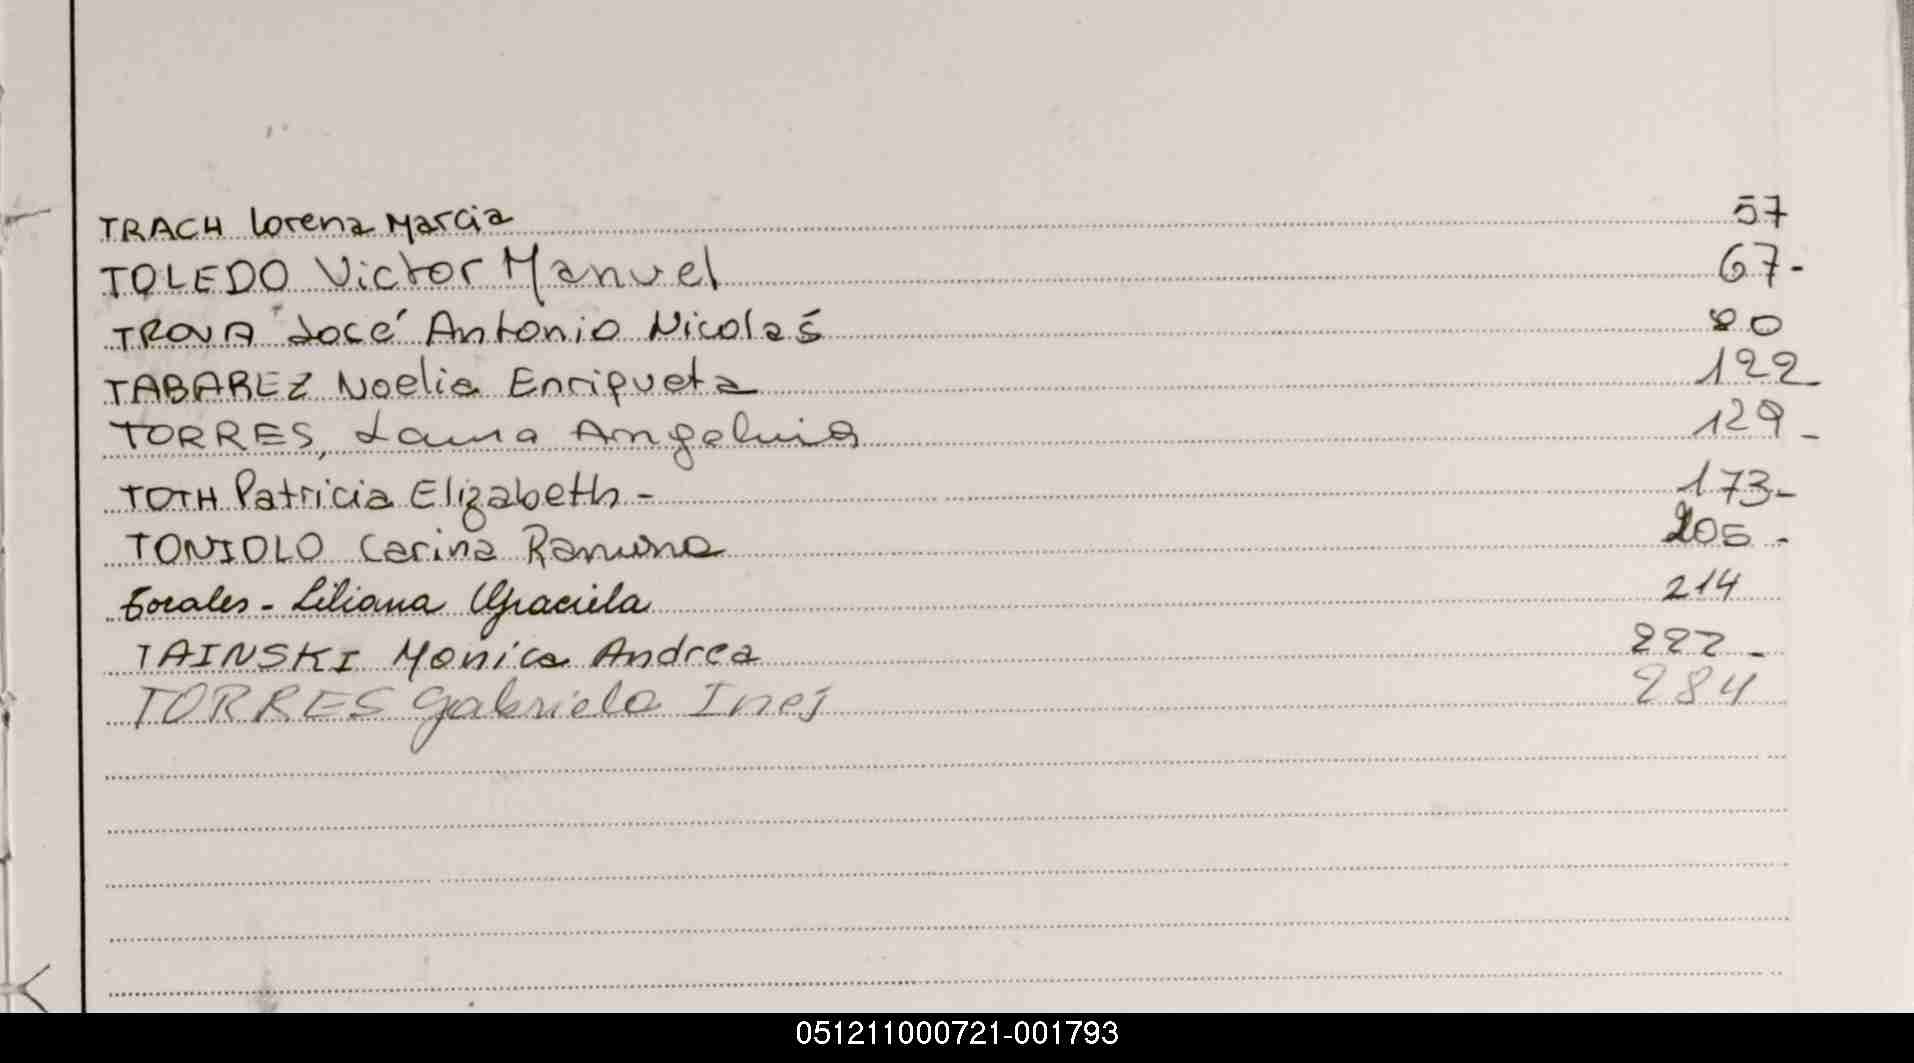 TRACH Lorena Marcia 57
TOLEDO Victor Manuel 67-
TROVA José Antonio Nicolás 80
TABAREZ Noelia Enriqueta 122-
TORRES, Laura Angelina 129-
TOTH Patricia Elizabeth - 173-
TONIOLO Carina Ramona 205-
Liliana Graciela 214
TAINSKI Monica Andrea 222-
TORRES Gabriela Ines 284
051211000721-001793